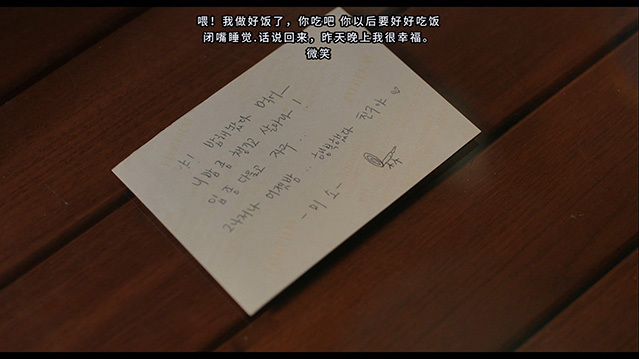 喂！我做好饭了，你吃吧 你以后要好好吃饭
闭嘴睡觉.话说回来，昨天晚上我很幸福。
微笑
야! 밥해놨다 먹어—
니 밥 좀 챙기고 살아라!
입 좀 다물고 자구..
그나저나 어젯밤.. 행복했다 친구야 ♡
- 미소 -